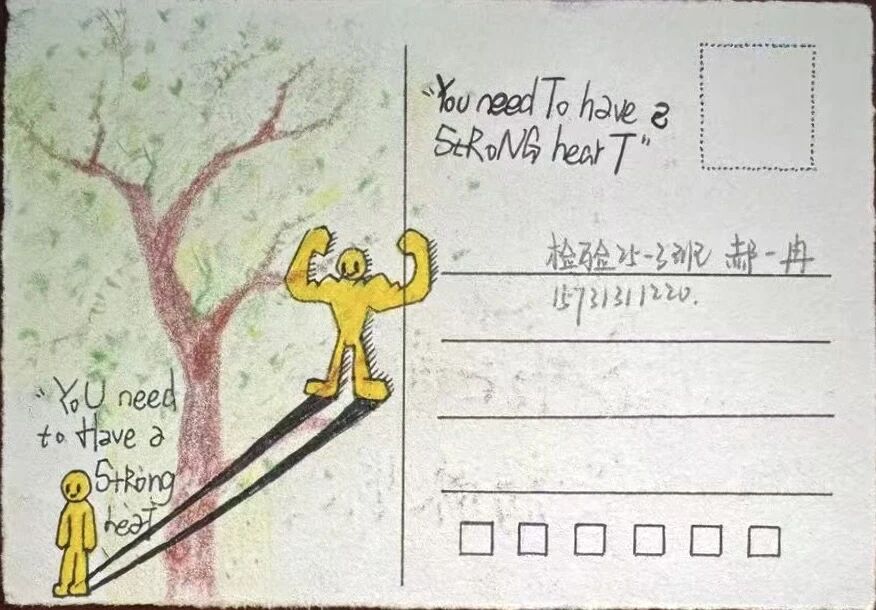 “You need To have a
StRoNG hearT”
检验25-3班 郝一冉
15731311220.
“YoU need
to Have a
StRong
heaT